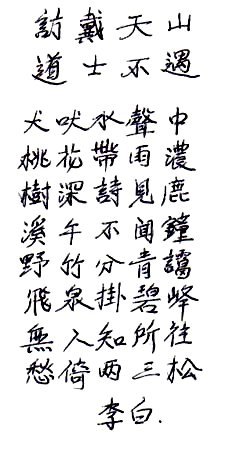 訪戴天山
道士不遇
犬吠水聲中
桃花帶雨濃
樹深詩見鹿
溪午不聞鐘
野竹分青譪
飛泉掛碧峰
無人知所往
愁倚两三松
李白.